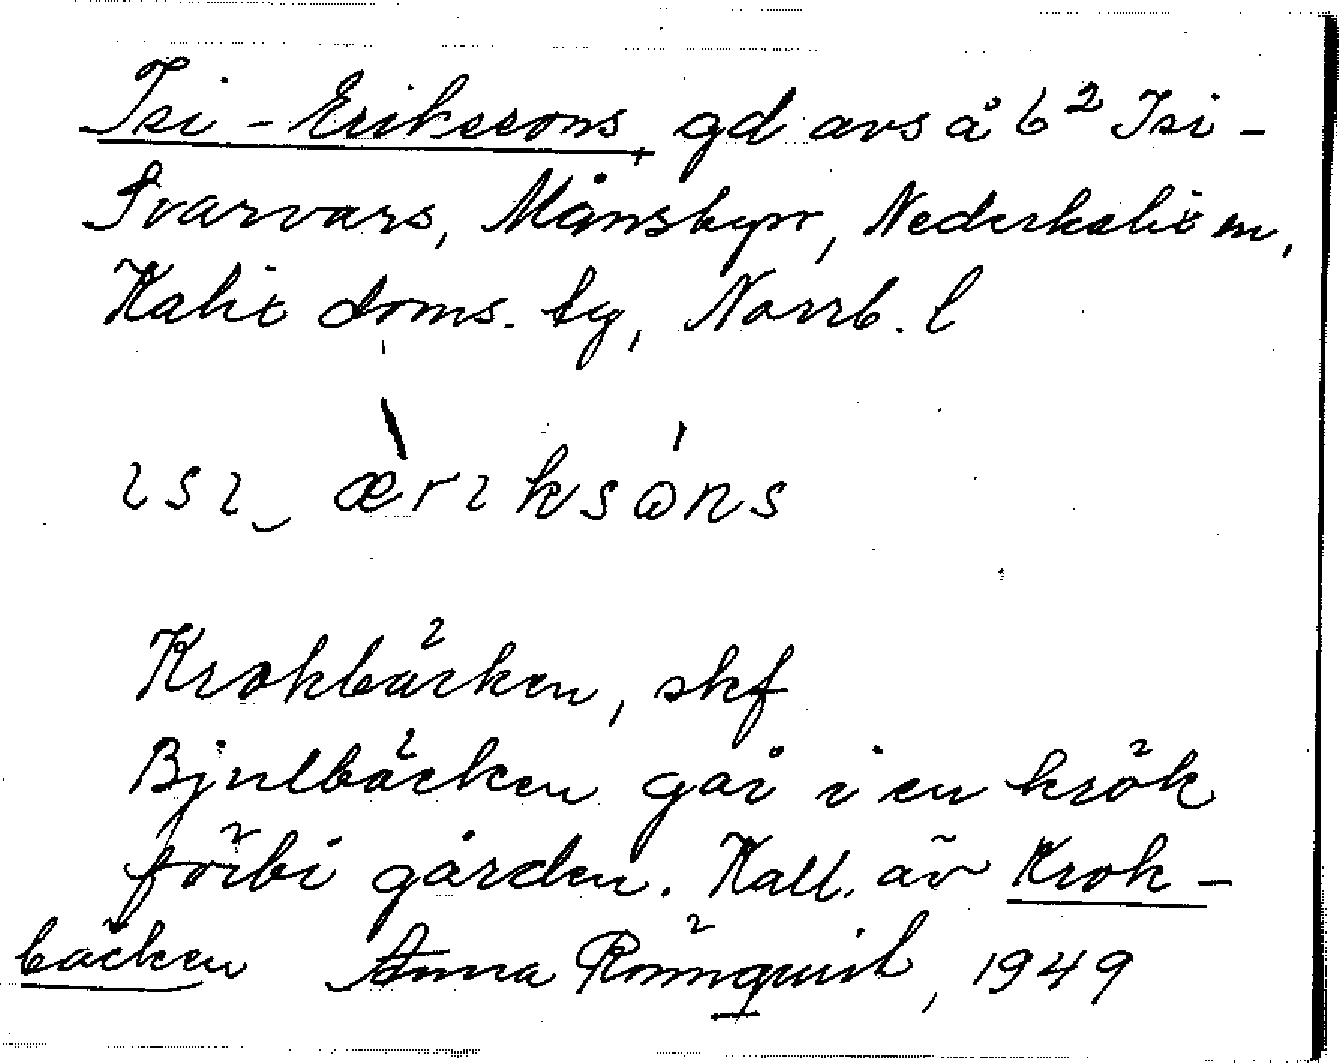 Isi-Erikssons, gd avs å 6² Isi-
Svarvars, Månsbyn, Nederkalix sn,
Kalix doms. by, Norrb. l
ısıærıksòns
Krokbäcken, skf
Bjulbäcken går i en krök
förbi gården. Kall. äv Krok-
bäcken Anna Rönnqvist, 1949